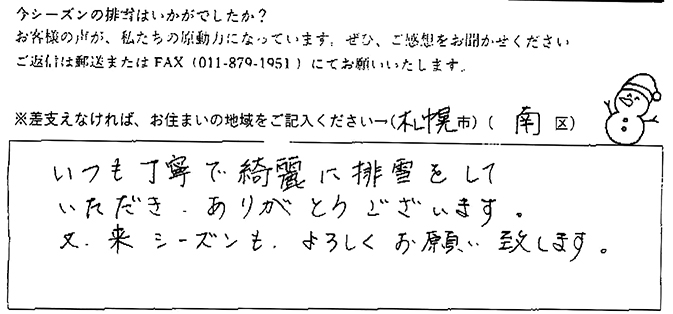 今シーズンの排雪はいかがでしたか?
お客様の声が、私たちの原動力になっています。ぜひ、ご感想をお聞かせください
ご返信は郵送またはFAX(011-879-1951)にてお願いいたします。
※差支えなければ、お住まいの地域をご記入ください→(札幌市)(南区)
いつも丁寧で綺麗に排雪をして
いただき、ありがとうございます。
又、来シーズンも、よろしくお願い致します。